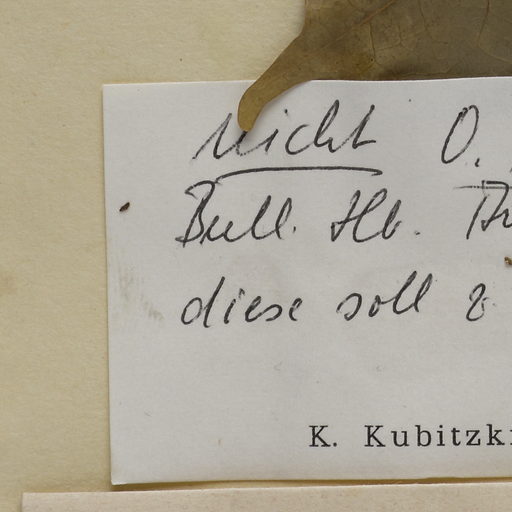 nicht O.
Bull. Hb.
diese soll
K. Kubitzki